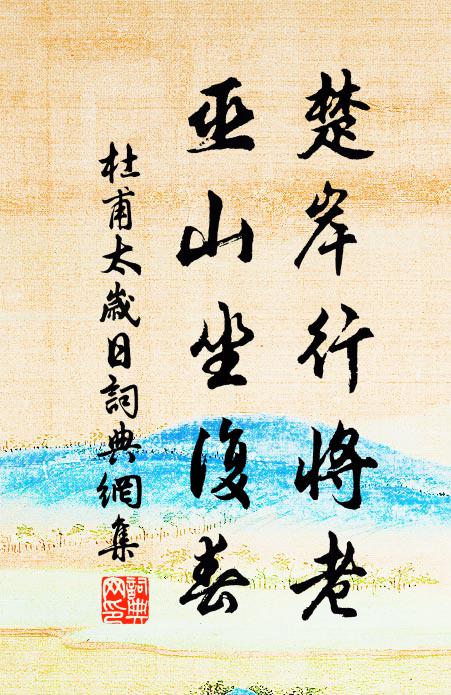 楚岸行將老
巫山坐復春
杜甫太歲日詞典網集